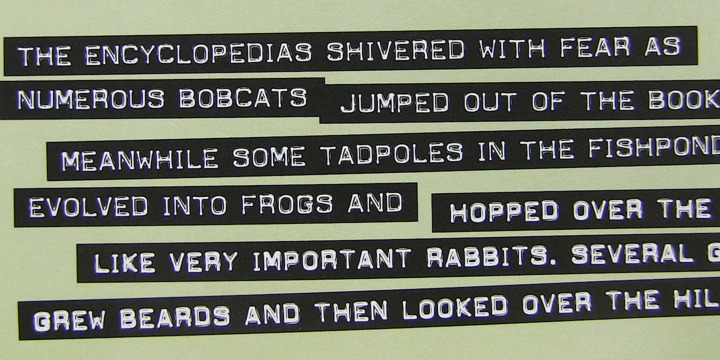 THE ENCYCLOPEDIAS SHIVERED WITH FEAR AS
NUMEROUS BOBCATS JUMPED OUT OF THE BOOK
MEANWHILE SOME TADPOLES IN THE FISHPOND
EVOLVED INTO FROGS AND HOPPED OVER THE
LIKE VERY IMPORTANT RABBITS. SEVERAL
GREW BEARDS AND THEN LOOKED OVER THE